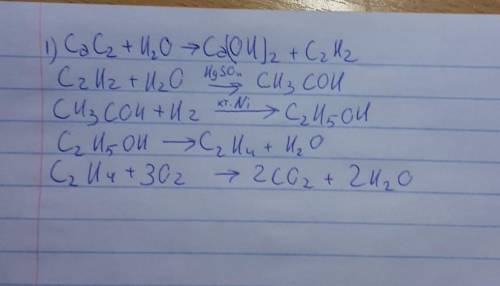 1) CaC2 + H2O → Ca(OH)2 + C2H2
C2H2 + H2O HgSO4 → CH3COH
CH3COH + H2 кт. Ni → C2H5OH
C2H5OH → C2H4 + H2O
C2H4 + 3O2 → 2CO2 + 2H2O